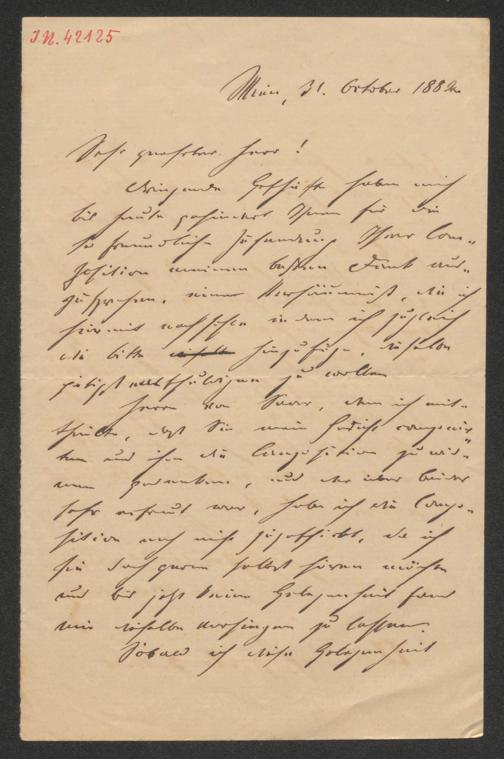 I.N. 42125
Wien, 31. October 188
Sehr geehrter Herr!
Dringende Geschäfte haben mich
bis heute gehindert Ihnen für die
so freundliche Zusendung Ihrer Com-
position meinen besten Dank aus-
zusprechen, eine Versäumniß, die ich
hiermit nachhole indem ich zugleich
die Bitte hinzufüge, dieselbe
gütigst entschuldigen zu wollen
Herrn von, dem ich mit-
theilte, daß Sie mein Gedicht componir-
ten und ihm die Composition zu wid-
men gedenken, und der über beides
sehr erfreut war, habe ich die Compo-
sition noch nicht zugeschickt, da ich
sie doch gerne selbst hören möchte
und bis jetzt keine Gelegenheit fand
mir dieselbe vorsingen zu lassen.
Sobald ich diese Gelegenheit